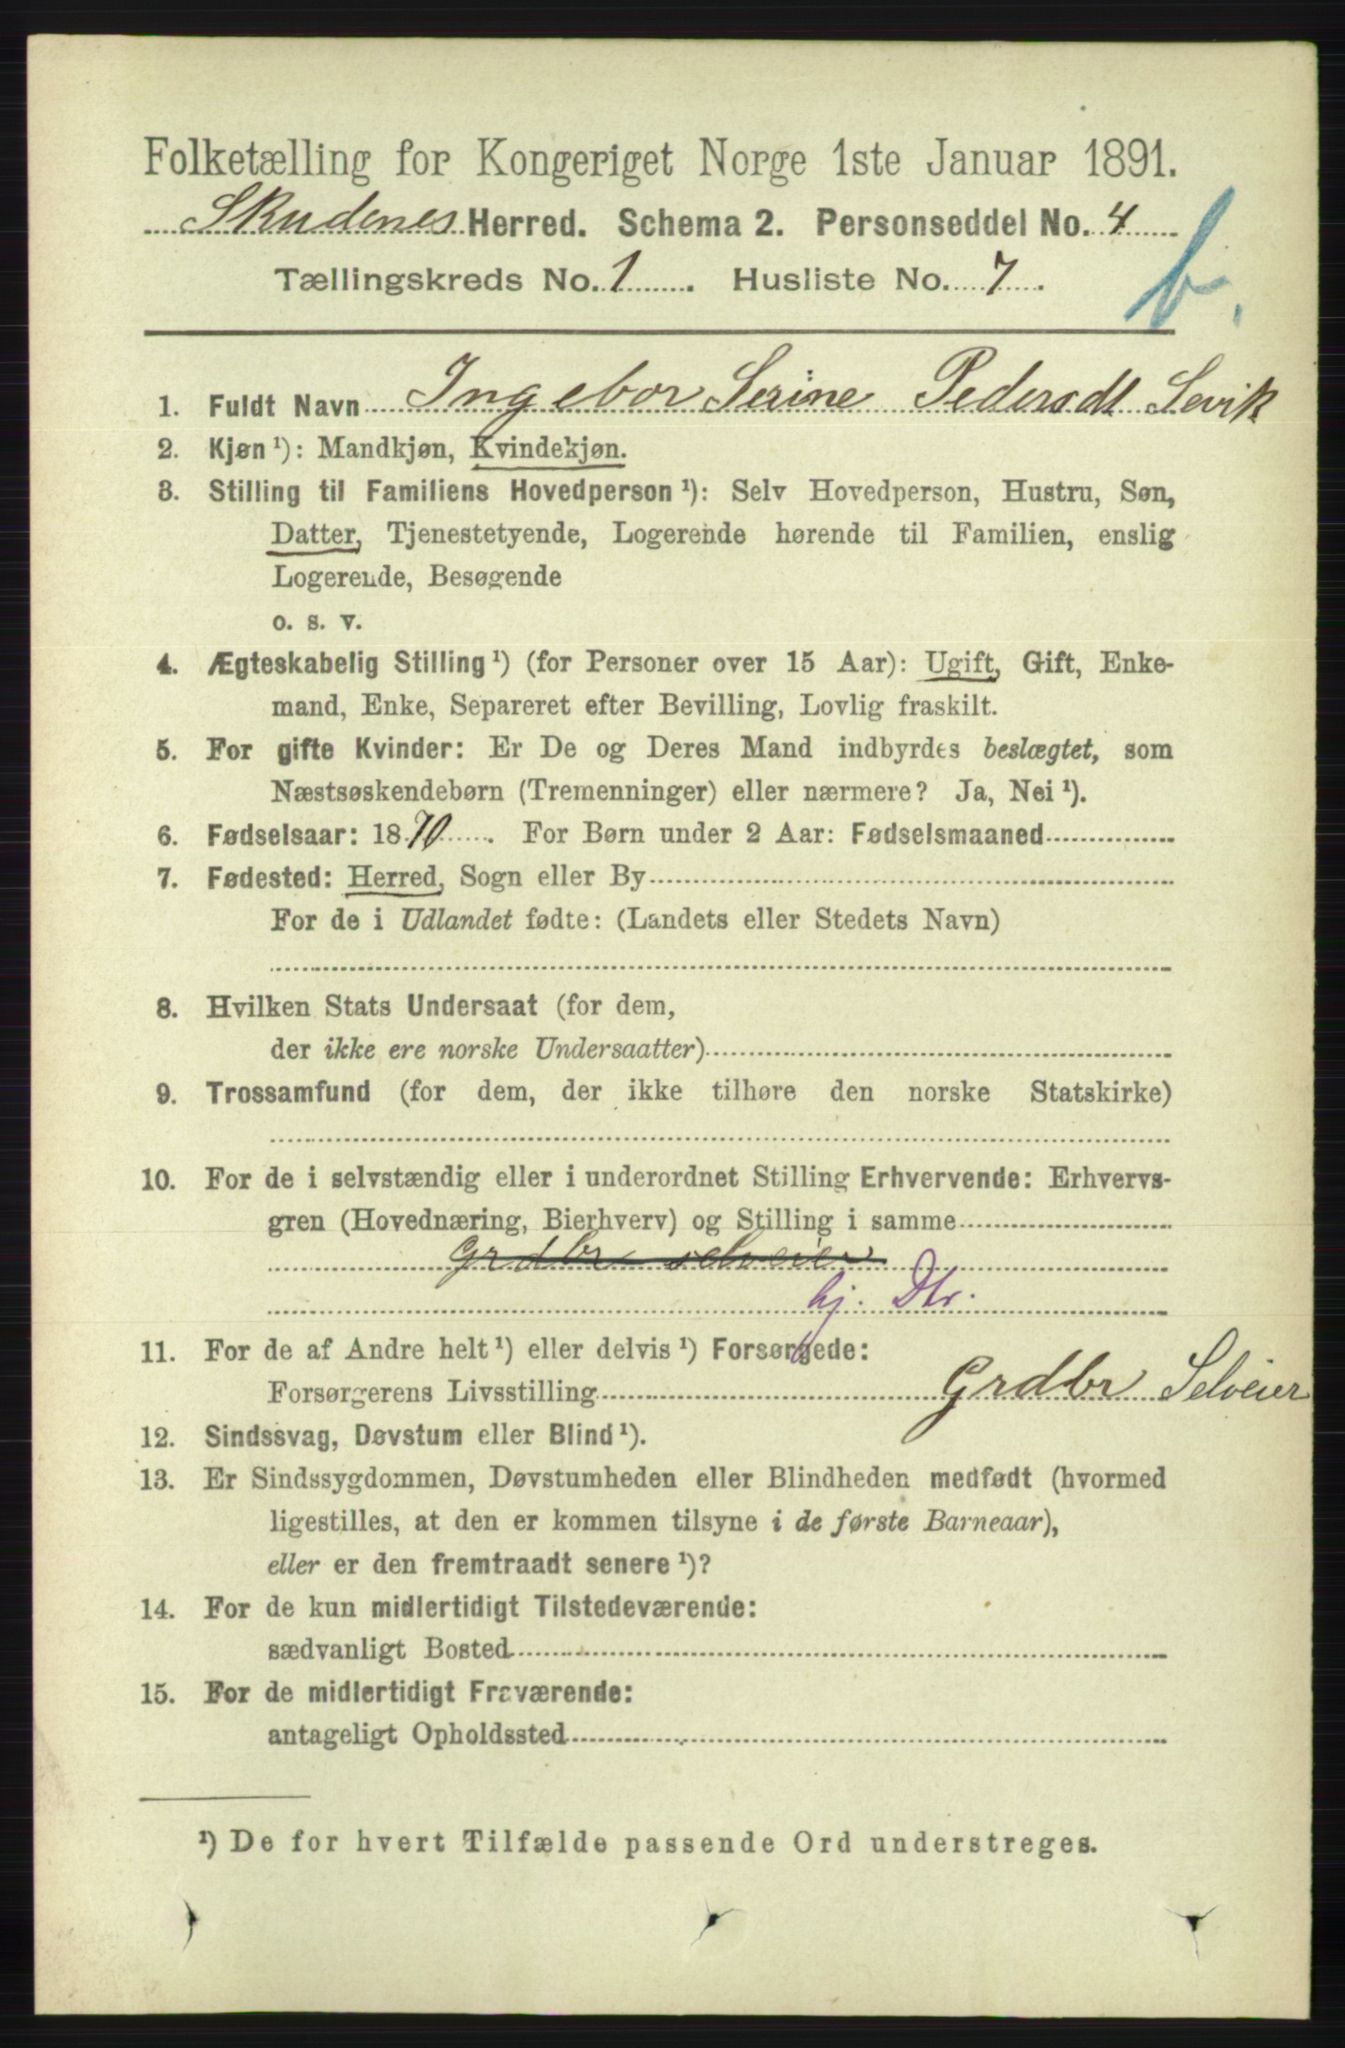 Folketælling for Kongeriget Norge 1ste Januar 1891.
Skudenes Herred. Schema 2. Personseddel No. 4
b.
Tællingskreds No. 1. Husliste No. 7.
1. Fuldt Navn Ingebor Serine Pedersdt Sevik
2. Kjøn ¹): Mandkjøn, Kvindekjøn.
3. Stilling til Familiens Hovedperson ¹): Selv Hovedperson, Hustru, Søn,
Datter, Tjenestetyende, Logerende hørende til Familien, enslig
Logerende, Besøgende
o. s. v.
4. Ægteskabelig Stilling ¹) (for Personer over 15 Aar): Ugift, Gift, Enke-
mand, Enke, Separeret efter Bevilling, Lovlig fraskilt.
5. For gifte Kvinder: Er De og Deres Mand indbyrdes beslægtet, som
Næstsøskendebørn (Tremenninger) eller nærmere? Ja, Nei ¹).
6. Fødselsaar: 1870. For Børn under 2 Aar: Fødselsmaaned
7. Fødested: Herred, Sogn eller By
For de i Udlandet fødte: (Landets eller Stedets Navn)
8. Hvilken Stats Undersaat (for dem,
der ikke ere norske Undersaatter)
9. Trossamfund (for dem, der ikke tilhøre den norske Statskirke)
10. For de i selvstændig eller i underordnet Stilling Erhvervende: Erhvervs-
gren (Hovednæring, Bierhverv) og Stilling i samme
Grdbr selveier
hj. Dtr.
11. For de af Andre helt ¹) eller delvis ¹) Forsørgede:
Forsørgerens Livsstilling Grdbr Selveier
12. Sindssvag, Døvstum eller Blind ¹).
13. Er Sindssygdommen, Døvstumheden eller Blindheden medfødt (hvormed
ligestilles, at den er kommen tilsyne i de første Barneaar),
eller er den fremtraadt senere ¹)?
14. For de kun midlertidigt Tilstedeværende:
sædvanligt Bosted
15. For de midlertidigt Fraværende:
antageligt Opholdssted
¹) De for hvert Tilfælde passende Ord understreges.